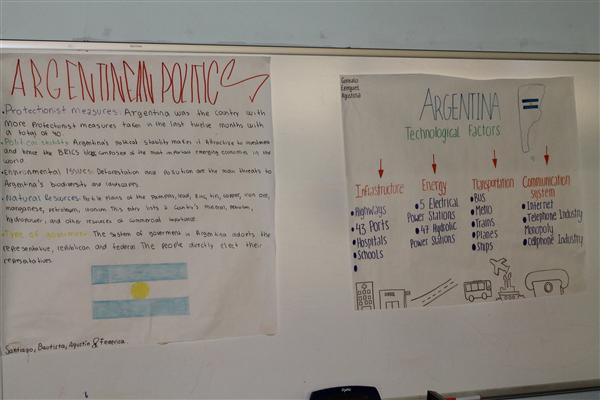 ARGENTINEAN POLITICS
• Protectionist measures: Argentina was the country with
more Protectionist measures taken in the last twelve months with
a total of 40.
• Political stability: Argentina's political stability makes it attractive to investment
and hence the BRICS composed of the most important emerging economies in the
world.
• Environmental Issues: Deforestation and pollution are the main threats to
Argentina's biodiversity and landscapes.
• Natural Resources: Fertile Plains of the Pampas, lead, zinc, tin, copper, iron ore,
manganese, petroleum, uranium. This entry lists a country's mineral, petroleum,
hydropower, and other resources of commercial importance.
• Type of government: The system of goverment in Argentina adopts the
representative, republican and federal. The people directly elect their
representatives.
Santiago, Bautista, Agustin & Federica.
Gonzalo
Ezequiel
Agustina
ARGENTINA
Technological Factors
Infrastructure
• Highways
• 43 Ports
• Hospitals
• Schools
•
Energy
• 5 Electrical
Power Stations
• 47 Hydrolic
Power Stations
Transportation
• Bus
• Metro
• Trains
• Planes
• Ships
Communication
system
• Internet
• Telephone Industry
Monopoly
• Cellphone Industry